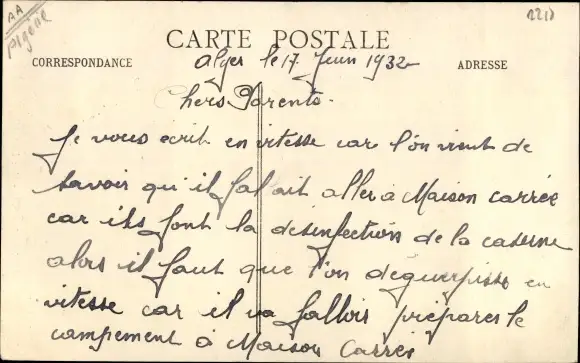 AA
pigéné
221)
CARTE POSTALE
CORRESPONDANCE
ADRESSE
Alger le 17 Juin 1932
Chers Parents.
Je vous écrit en vitesse car l'on vient de
savoir qu'il falait aller à Maison carrée
car ils font la desinfection de la caserne
alors il faut que l'on déguerpisse en
vitesse car il va falloir préparer le
campement à Maison Carrée